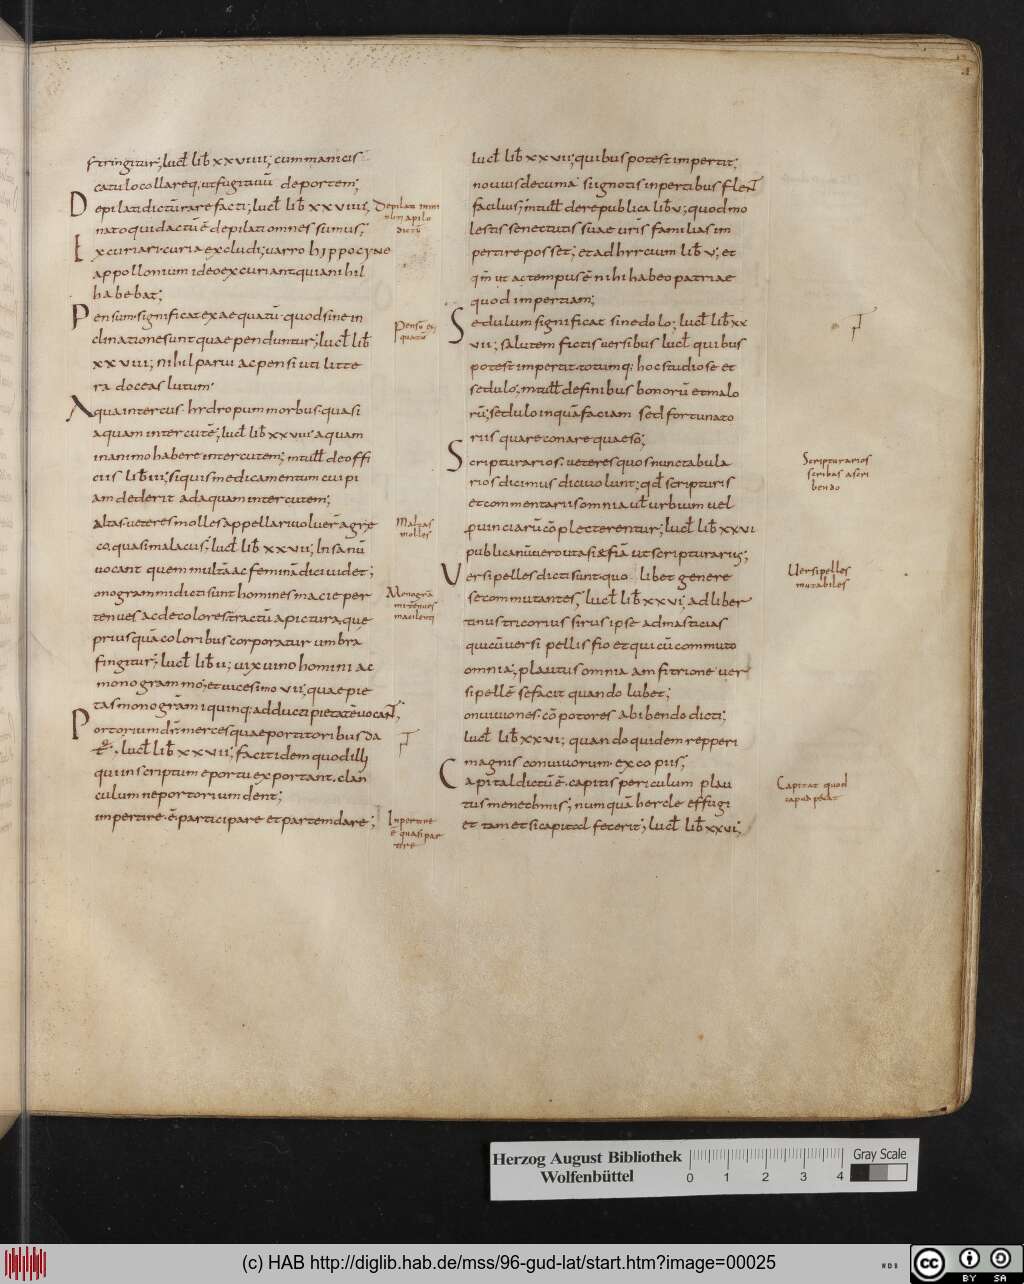 stringitur; lucł lib̄ xxviiii; cum manicis
catulo collareq, ut fugitiuū deportem;
Depilati dictū rare facti; lucł lib̄ xxviiii,
nato qui dactū ē depilati omnes sumus;
Depilati
dictū
Excuriari curia excludi; uarro hippocyne
appollonium ideo excuriant quia nihil
habebat;
Pensum significat exaequatū quod sine in
clinatione sunt quae penduntur; lucł lib̄
xxviii; nihil parui ac pensi uti litte
ra doceas lutum
Pensū ex
quatū
Aqua intercus hydropum morbus quasi
aquam intercutē; lucł lib̄ xxviii aquam
in animo habere intercutem; mtułł de offi
ciis lib̄ iii; si quis medicamentum cuipi
am dederit ad aquam intercutem;
altas ueteres molles appellari uoluer̄ a gre
co, quasi malacus; lucł lib̄ xxvii; Insanū
uocant quem multā ac feminā dici uidet;
Maltas
molles
onogrammi dicti sunt homines macie per
tenues ac decolores tractū a pictura que
priusquā coloribus corporatur umbra
fingitur; lucł lib̄ ii; uix uiuo homini ac
monogrammo; et uicesimo vii; quae pie
tas monogrāmi quinq: adducti pietatē uocaNT;
Monogrā
mi tenues
macilenti
Portorium dr̄ merces quae portitoribus da
tr̄, lucł lib̄ xxvii; facit idem quod illi
qui inscriptum e portu exportant clan
culum ne portorium dent;
impertire ē participare et partem dare;
Inpertire
ē quasi par
tire
lucł lib̄ xxvii; quibus potest impertit;
nouius decuma si ignotis inpertibus fleNT
facilius; mtułł de re publica lib̄ v; quod mo
lestis senectutis suae uris familias im
pertire posset; et ad hircum lib̄ v; et
qm̄ ut ac tempus ē nihi habeo patriae
quod impertiam;
Sedulum significat sine dolo; lucł lib̄ xx
vii; salutem fictis uersibus lucł quibus
potest impertit totumq: hoc studiose et
sedulo; mtułł de finibus bonorū et malo
rū; sedulo inquā faciam sed fortunato
rus quare conare quaeso;
Scripturarios ueteres quos nunc tabula
rios dicimus dici uolunt; qđ scripturis
et commentariis omnia uł urbium uel
prouinciarū cōplecterentur; lucł lib̄ xxvi
publicanū uero ut asiae fiā ut scripturarius;
Scripturarios
scribas a scri
bendo
Versipelles dicti sunt quo libet genere
se commutantes; lucł lib̄ xxvi, ad liber
tinus tricorius sirus ipse ad masticias
quicū uersipellis fio et qui cū commuto
omnia; plautus omnia amfitrione uer
sipellē se facit quando lubet;
Uersipelles
mutabiles
onuiuones cōpotores a bibendo dicti;
lucł lib̄ xxvi; quandoquidem repperi
magnis conuiuorum ex copiis;
Capital dictū ē capitis periculum plau
tus menechmis; numquā hercle effugi
et tametsi capital fecerit; lucł lib̄ xxvi;
Capital quod
caput pedat
Herzog August Bibliothek
Wolfenbüttel
0 1 2 3 4
Gray Scale
(c) HAB http://diglib.hab.de/mss/96-gud-lat/start.htm?image=00025
WDB
cc BY SA